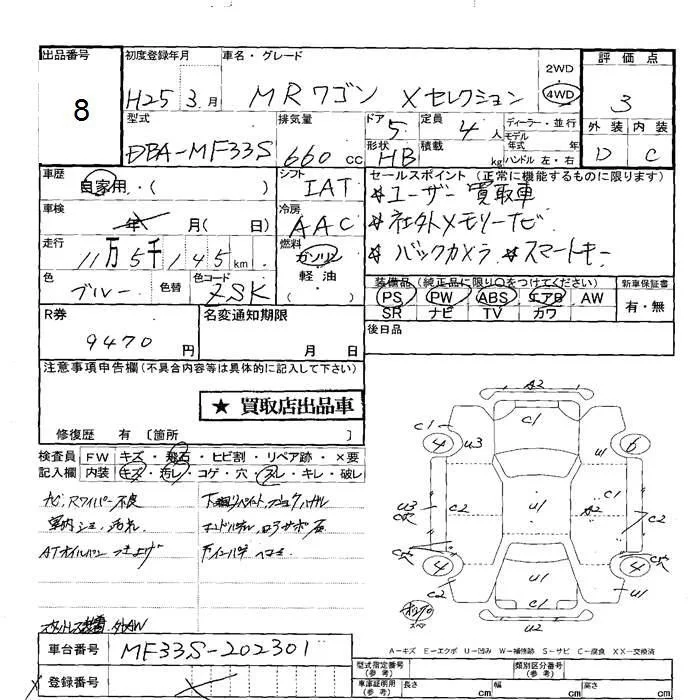 出品番号
8
初度登録年月
H25 3月
車名・グレード
MRワゴン Xセレクション
2WD
4WD
評価点
3
外装 内装
D C
型式
DBA-MF33S
排気量
660cc
ドア
5
定員
4人
形状
HB
積載
kg
ディーラー・並行
モデル
年式 年
ハンドル 左・右
車歴
自家用・( )
シフト
IAT
セールスポイント (正常に機能するものに限ります)
※ユーザー買取車
※社外メモリーナビ
※バックカメラ ※スマートキー
車検
年 月( 日)
冷房
AAC
走行
11万5千145km
燃料
ガソリン
軽油・
( )
色
ブルー
色替
色コード
ZSK
装備品 (純正品に限り○をつけてください)
PS PW ABS エアB AW
SR ナビ TV カワ
新車保証書
有・無
後日品
R券
9470円
名変通知期限
月 日
注意事項申告欄(不具合内容等は具体的に記入して下さい)
★ 買取店出品車
修復歴 有 〔箇所 〕
検査員
記入欄
FW キズ・飛石・ヒビ割・リペア跡・×要
内装 キズ・汚レ・コゲ・穴・スレ・キレ・破レ
ナビ、Rワイパー不良
車内シミ、汚れ
車台番号
MF33S-202301
登録番号
A2
C1
C1
4
U3
6
U1
U3
C2
U1
A2
C1
C2
4
4
C2
U1
C1
U1
U2
A-キズ E-エクボ U-凹み W-補修跡 S-サビ C-腐食 XX-交換済
型式指定番号
(参考)
類別区分番号
(参考)
車庫証明用
(参考)
長さ cm 幅 cm 高さ cm